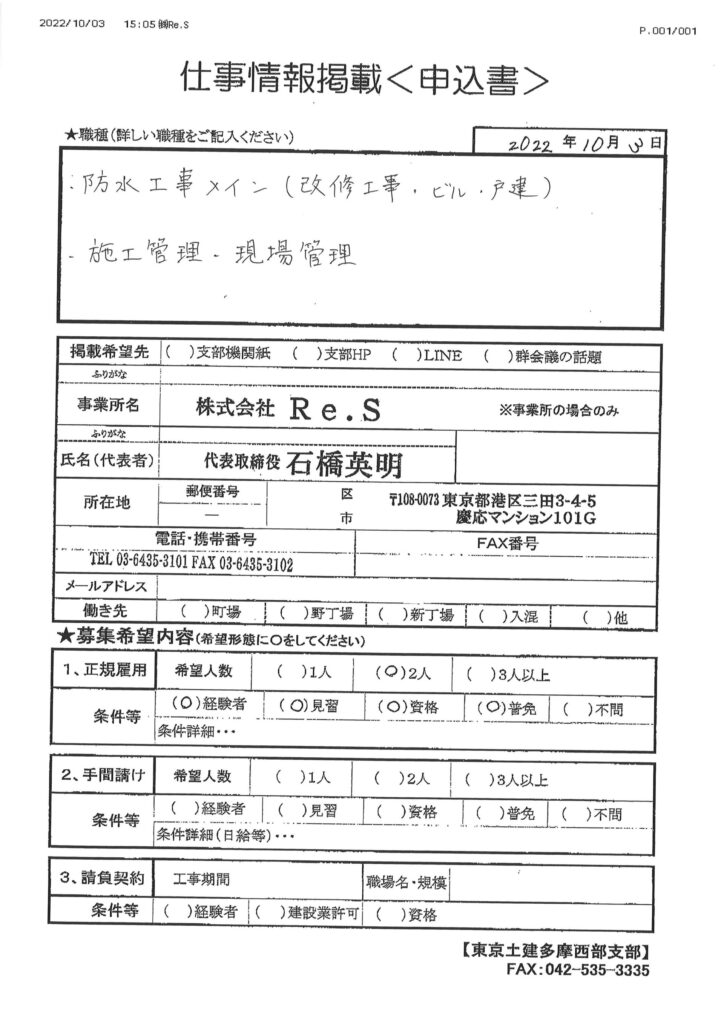 2022/10/03 15:05 ㈱Re.S
P.001/001
仕事情報掲載＜申込書＞
★職種(詳しい職種をご記入ください)
2022 年 10 月 3 日
・防水工事メイン(改修工事・ビル・戸建)
・施工管理・現場管理
掲載希望先 ( )支部機関紙 ( )支部HP ( )LINE ( )群会議の話題
ふりがな
事業所名 株式会社 Re.S ※事業所の場合のみ
ふりがな
氏名(代表者) 代表取締役 石橋英明
所在地 郵便番号 ― 区 市 〒108-0073 東京都港区三田3-4-5
慶応マンション101G
電話・携帯番号 FAX番号
TEL 03-6435-3101 FAX 03-6435-3102
メールアドレス
働き先 ( )町場 ( )野丁場 ( )新丁場 ( )入混 ( )他
★募集希望内容(希望形態に○をしてください)
1、正規雇用 希望人数 ( )1人 (○)2人 ( )3人以上
条件等 (○)経験者 (○)見習 (○)資格 (○)普免 ( )不問
条件詳細・・・
2、手間請け 希望人数 ( )1人 ( )2人 ( )3人以上
条件等 ( )経験者 ( )見習 ( )資格 ( )普免 ( )不問
条件詳細(日給等)・・・
3、請負契約 工事期間 職場名・規模
条件等 ( )経験者 ( )建設業許可 ( )資格
【東京土建多摩西部支部】
FAX:042-535-3335